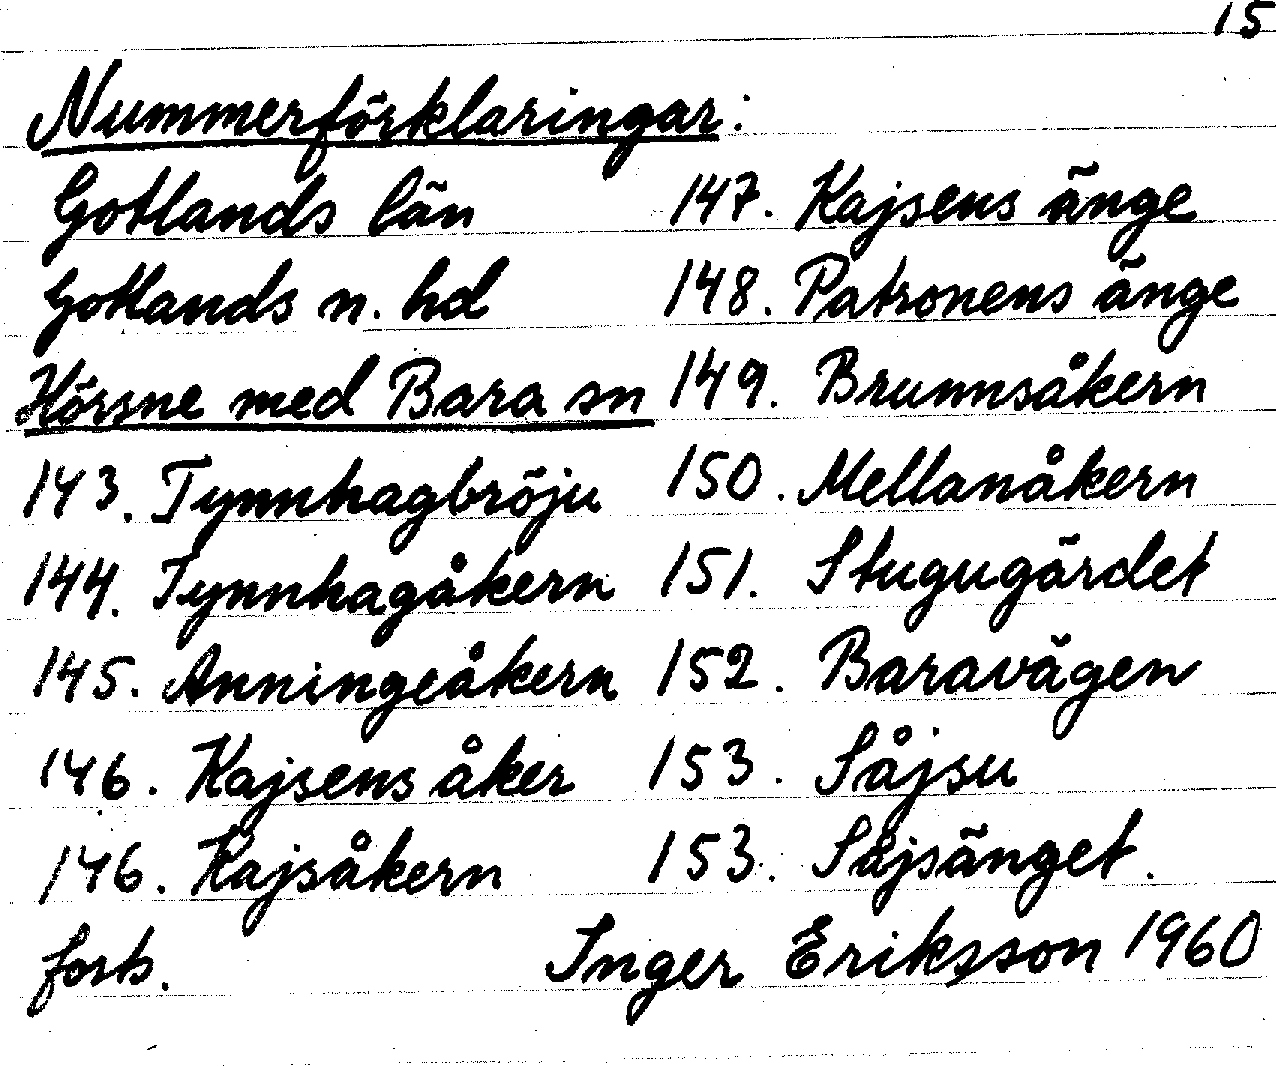 15
Nummerförklaringar:
Gotlands län
Gotlands n. hd
Hörsne med Bara sn
143. Tynnhagbröju
144. Tynnhagåkern
145. Anningeåkern
146. Kajsens åker
146. Kajsåkern
147. Kajsens änge
148. Patronens änge
149. Brunnsåkern
150. Mellanåkern
151. Stugugärdet
152. Baravägen
153. Såjsu
153. Såjsänget.
forts.
Inger Eriksson 1960